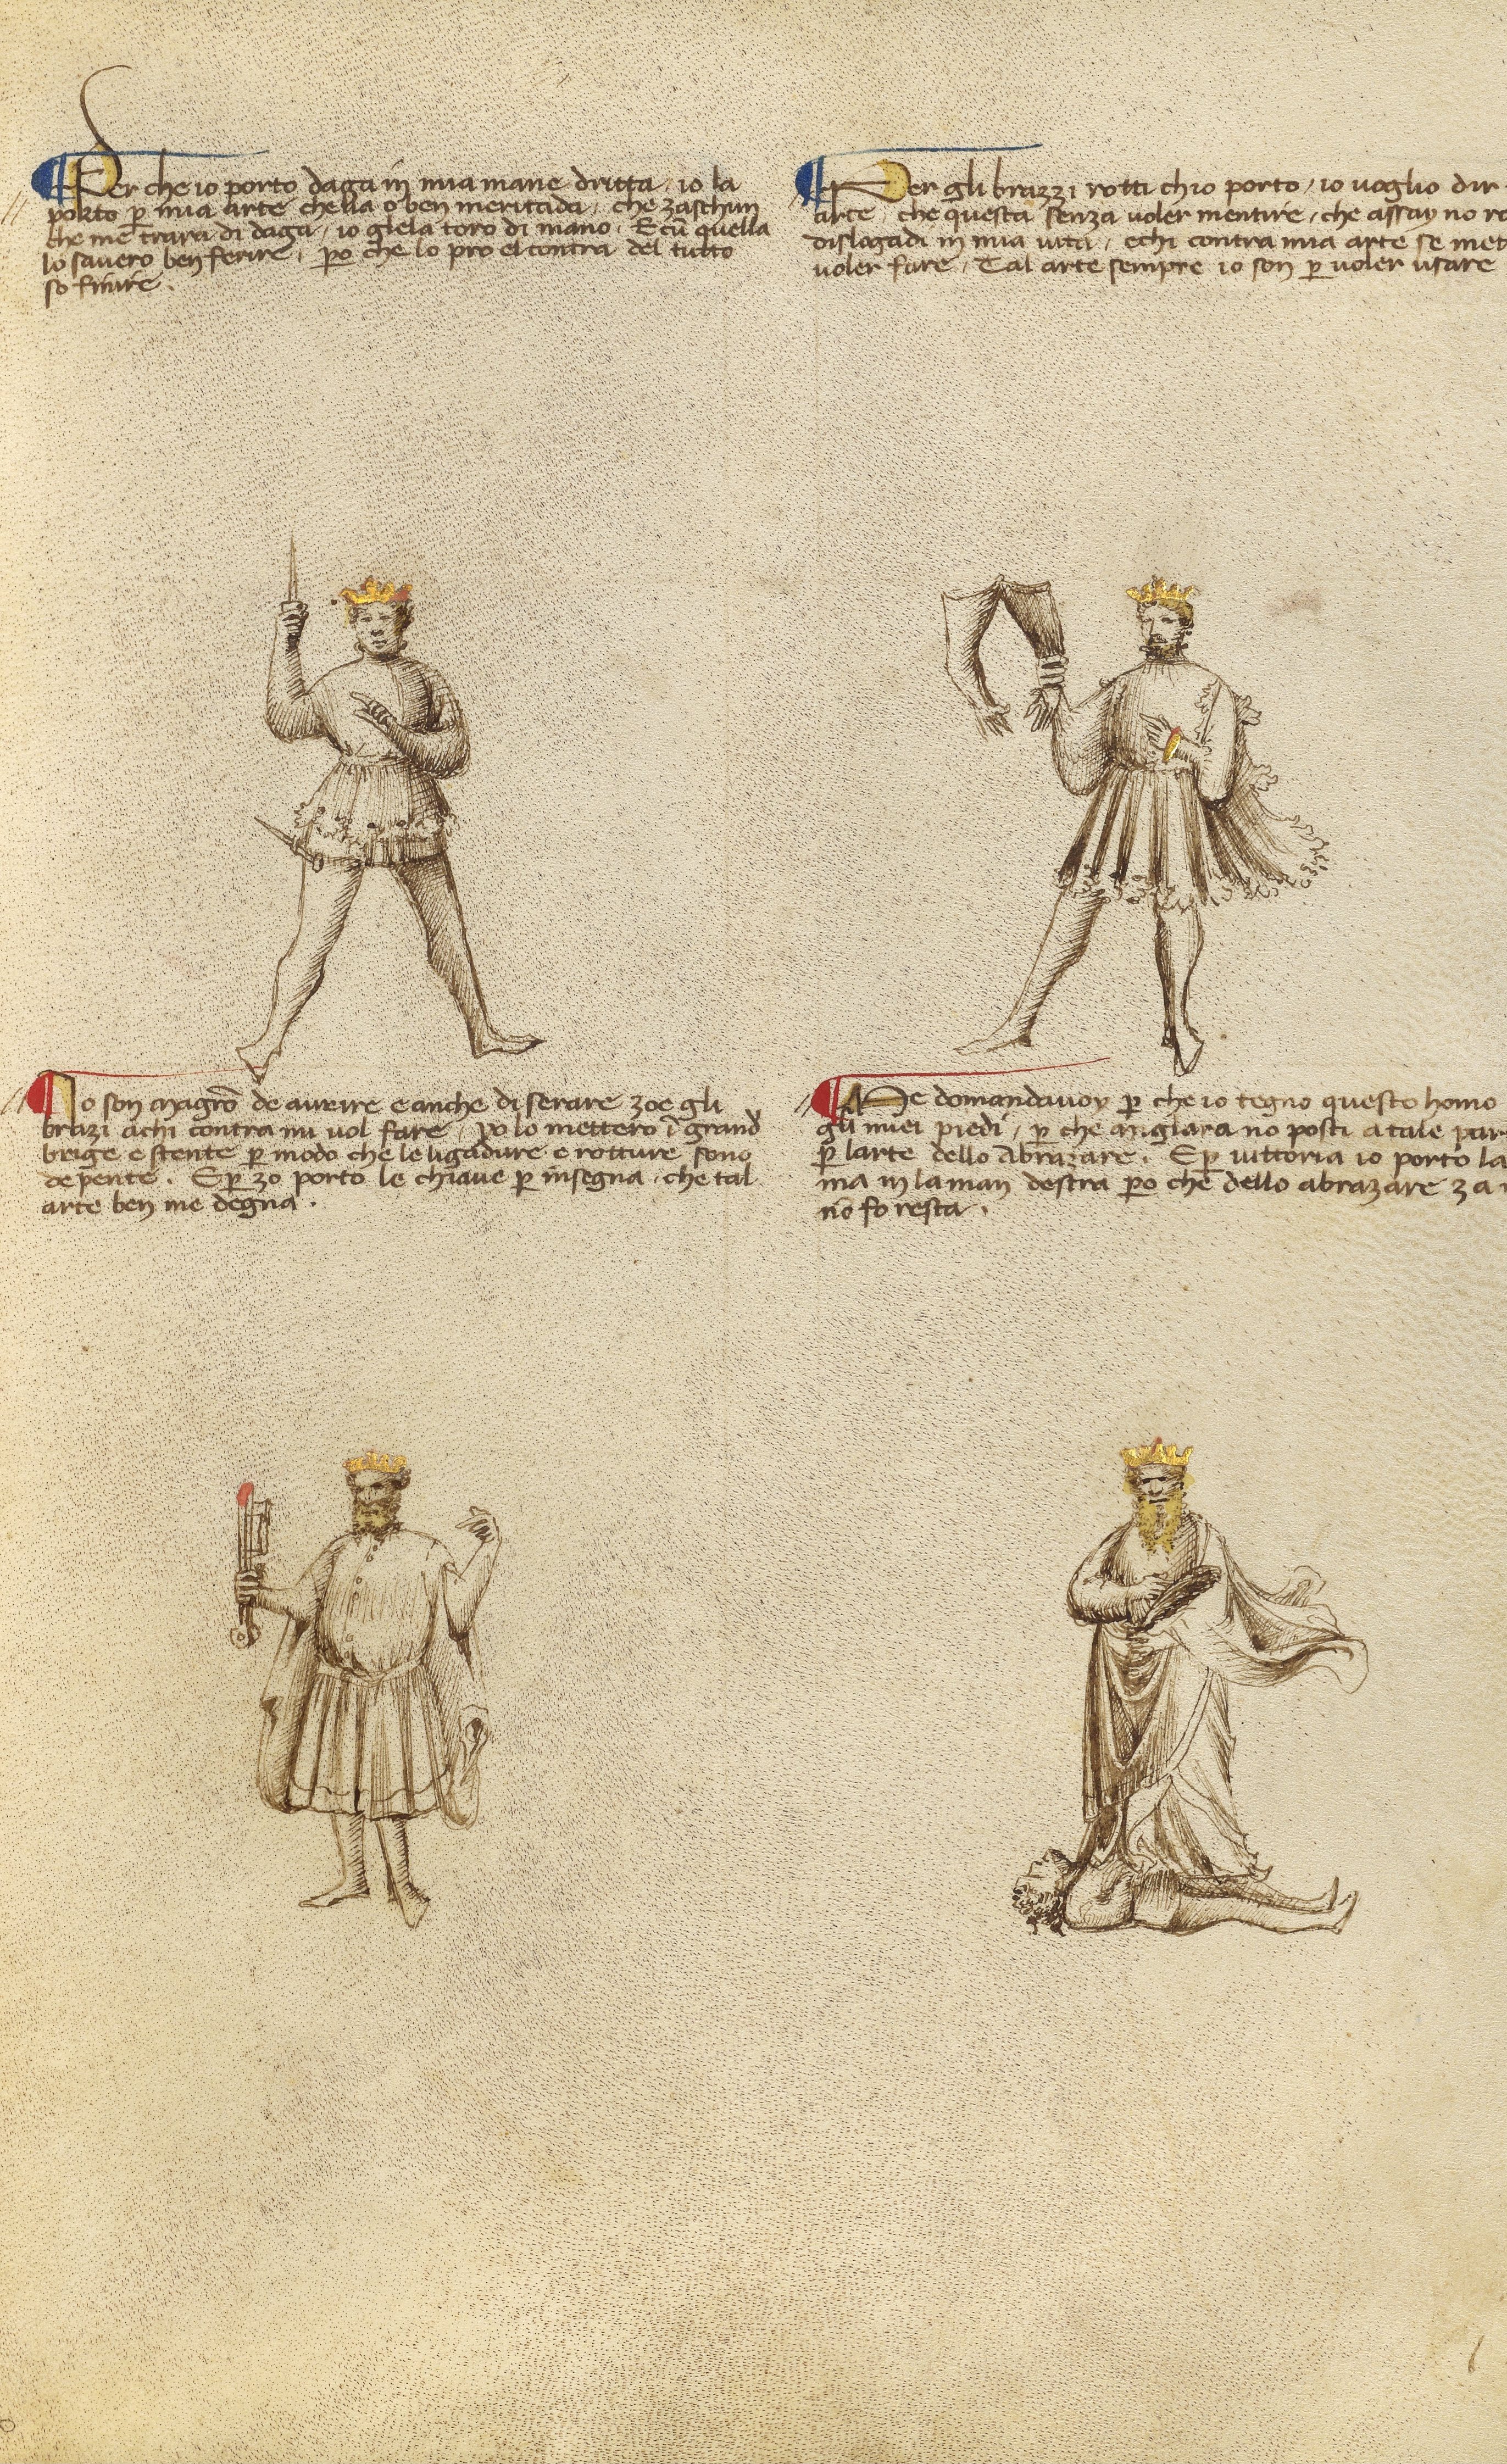 Per che io porto daga in mia mane dritta / io la
porto p mia arte chella o ben meritada / che zaschun
che me trara di daga / io glela toro di mano. E cũ quella
lo savero ben ferire, po che lo pro el contra del tutto
so finire.
Per gli brazzi rotti ch io porto / io voglio dir
arte / che questa senza voler mentire / che assay no ro
dislogadi in mia vita / e chi contra mia arte se met
voler fare / Tal arte sempre io son p voler usare
Io son magrõ de avrire e anche di serare zoe gli
brazi a chi contra mi vol fare / lo mettero ĩ grand
brige e stente p modo che le ligadure e rotture sono
depente. E p zo porto le chiave p insegna, che tal
arte ben me degna.
Me domandavoy p che io tegno questo homo
gli miei piedi / p che miglara no posti a tale par
p larte dello abrazare. E p vittoria io porto la
ma in la man destra po che dello abrazare za
nõ fo resta.